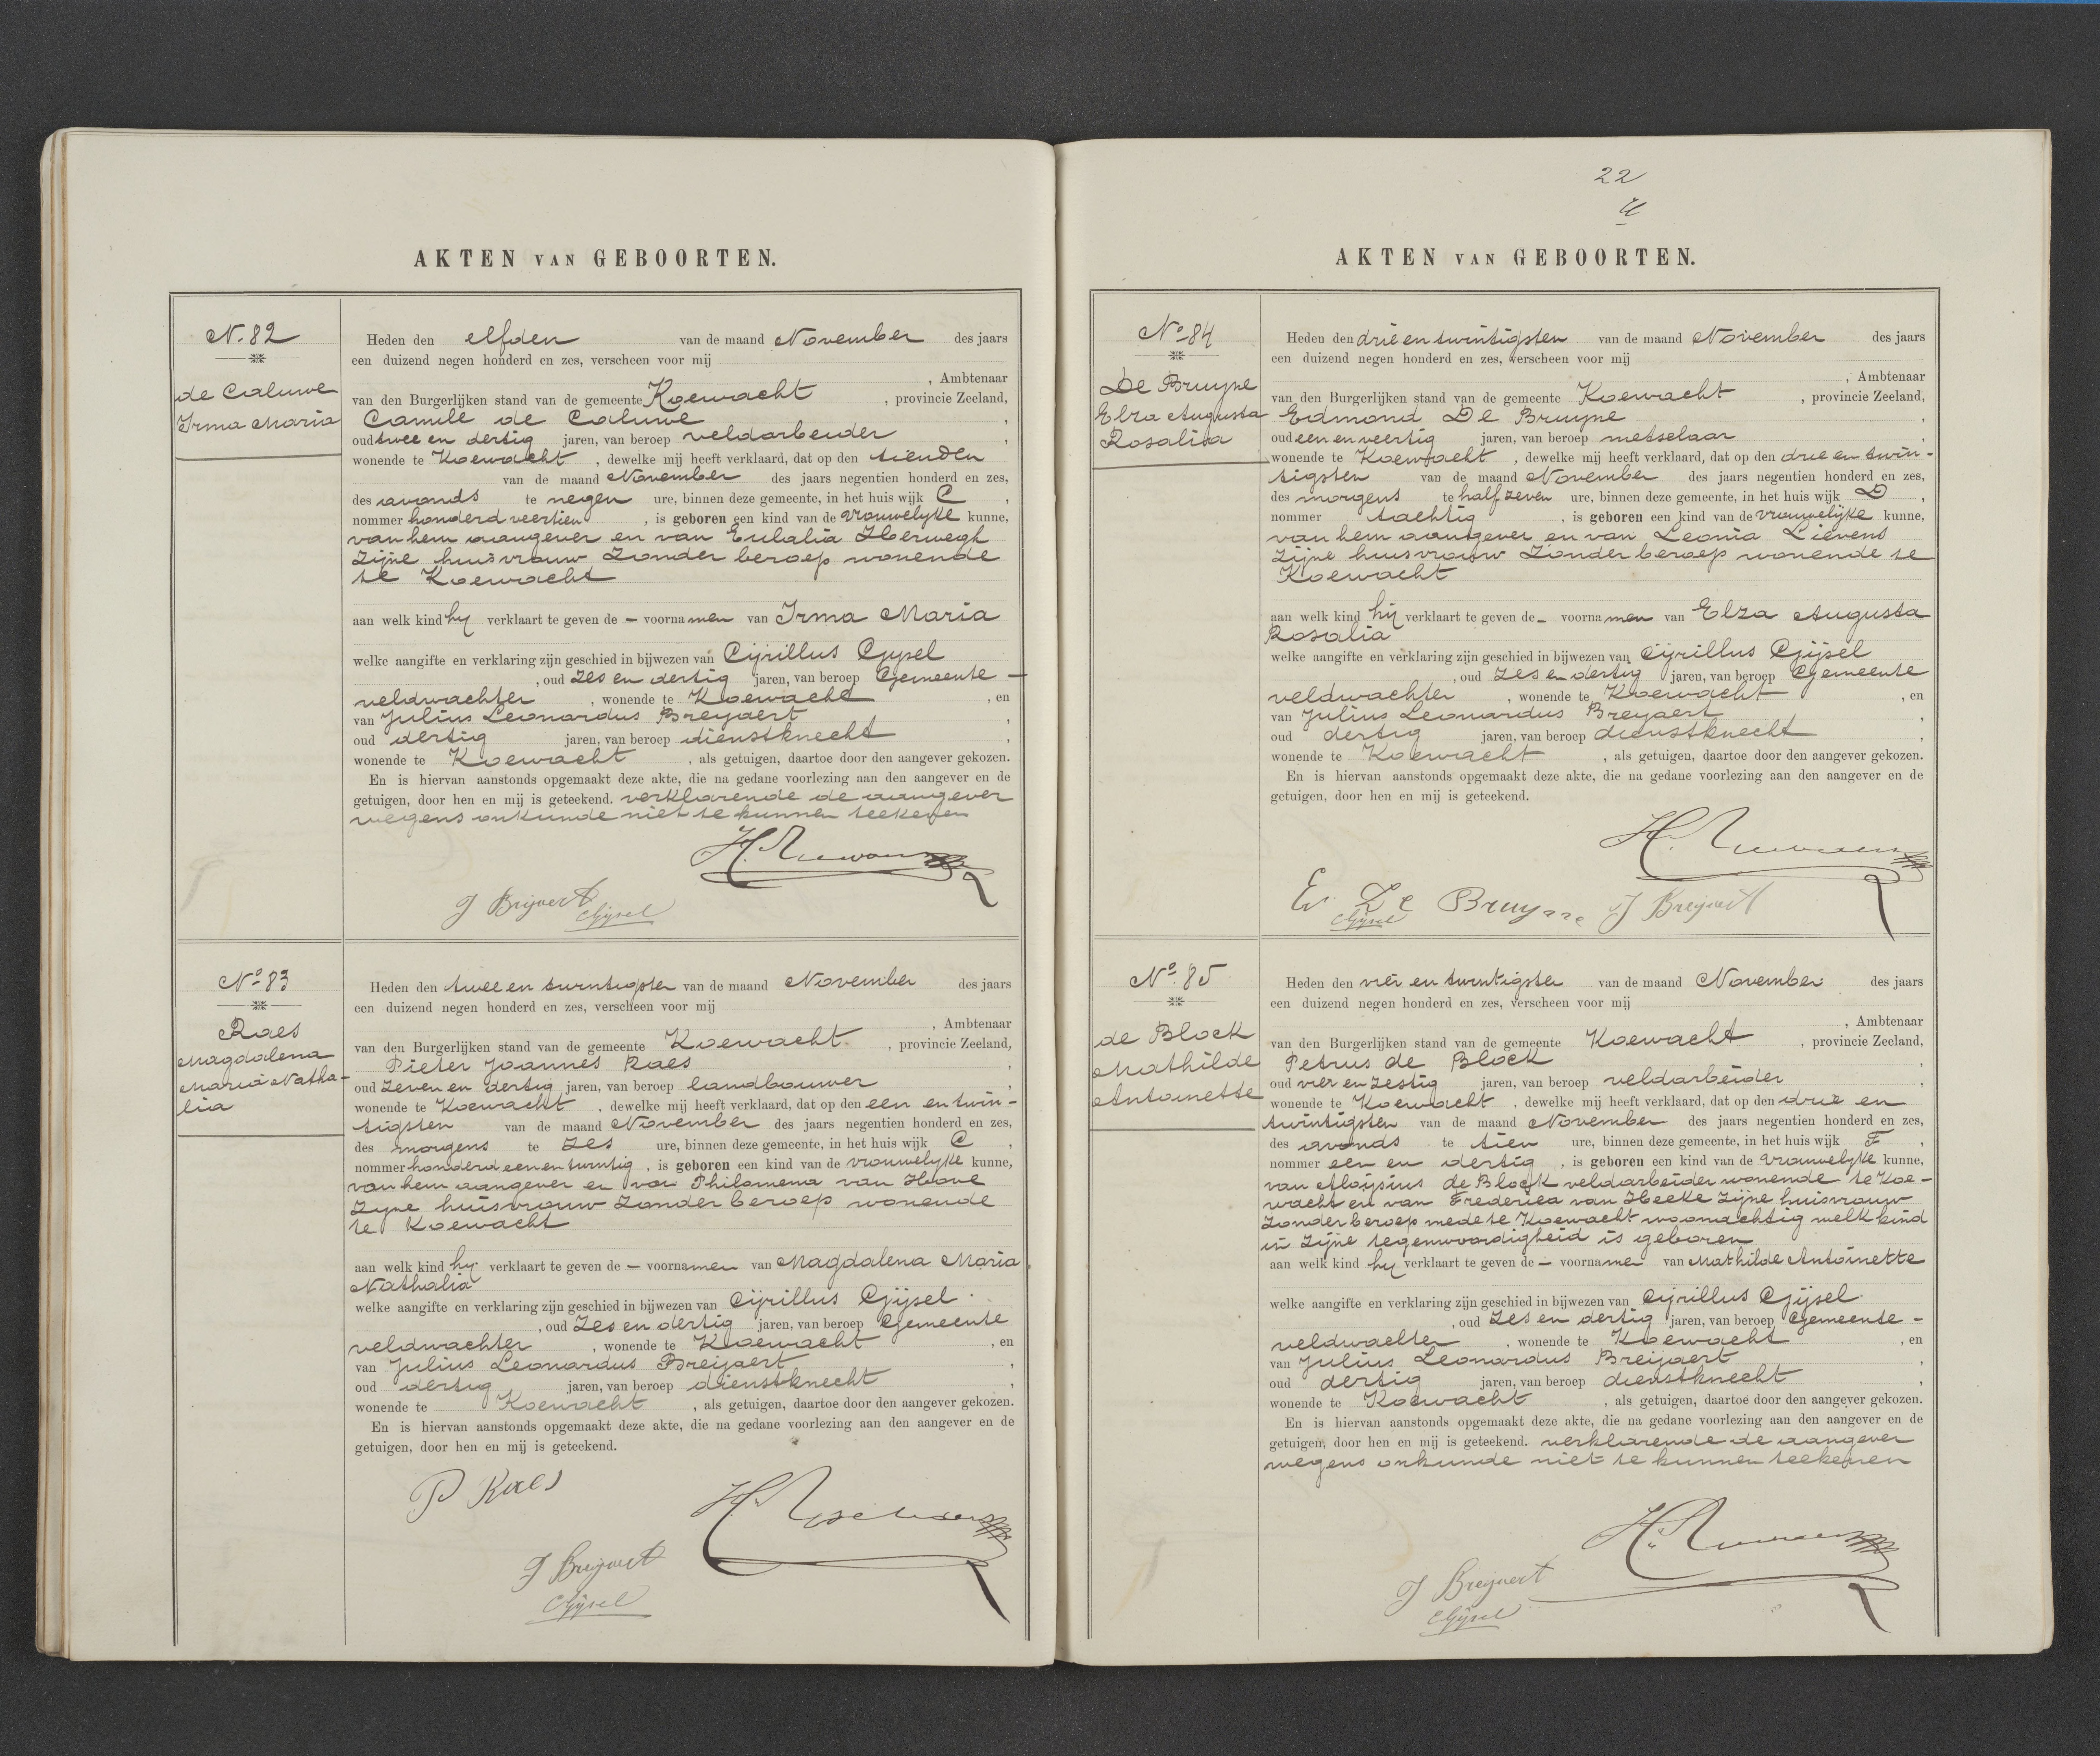 AKTEN VAN GEBOORTEN.
N. 82
de Caluwe
Irma Maria
Heden den elfden van de maand November des jaars
een duizend negen honderd en zes, verscheen voor mij
, Ambtenaar
van den Burgerlijken stand van de gemeente Koewacht , provincie Zeeland,
Camile de Caluwe ,
oud twee en dertig jaren, van beroep veldarbeider ,
wonende te Koewacht , dewelke mij heeft verklaard, dat op den tienden
van de maand November des jaars negentien honderd en zes,
des avonds te negen ure, binnen deze gemeente, in het huis wijk C ,
nommer honderd veertien , is geboren een kind van de vrouwelyke kunne,
van hem aangever en van Eulalia
Zijne huisvrouw Zonder beroep wonende
te Koewacht
aan welk kind hy verklaart te geven de – voornamen van Irma Maria
welke aangifte en verklaring zijn geschied in bijwezen van Cijrillus Gijsel
, oud Zes en dertig jaren, van beroep Gemeente –
veldwachter , wonende te Koewacht , en
van Julius Leonardus Breyaert ,
oud dertig jaren, van beroep dienstknecht ,
wonende te Koewacht , als getuigen, daartoe door den aangever gekozen.
En is hiervan aanstonds opgemaakt deze akte, die na gedane voorlezing aan den aangever en de
getuigen, door hen en mij is geteekend. verklarende de aangever
wegens onkunde niet te kunnen teekenen
J Breijaert
CGijsel
No 83
Raes
Magdalena
Maria Natha-
lia
Heden den twee en twintigsten van de maand November des jaars
een duizend negen honderd en zes, verscheen voor mij
, Ambtenaar
van den Burgerlijken stand van de gemeente Koewacht. , provincie Zeeland,
Pieter Joannes Raes ,
oud Zeven en dertig jaren, van beroep landbouwer ,
wonende te Koewacht , dewelke mij heeft verklaard, dat op den een en twin-
tigsten van de maand November des jaars negentien honderd en zes,
des morgens te Zes ure, binnen deze gemeente, in het huis wijk C ,
nommer honderd een en twintig , is geboren een kind van de vrouwelyke kunne,
van hem aangever en van Philomena van Hove
Zyne huisvrouw Zonder beroep wonende
te Koewacht
aan welk kind hy verklaart te geven de – voornamen van Magdalena Maria
Nathalia
welke aangifte en verklaring zijn geschied in bijwezen van Cijrillus Gijsel
, oud Zes en dertig jaren, van beroep Gemeente
veldwachter , wonende te Koewacht , en
van Julius Leonardus Breijaert ,
oud dertig jaren, van beroep dienstknecht ,
wonende te Koewacht , als getuigen, daartoe door den aangever gekozen.
En is hiervan aanstonds opgemaakt deze akte, die na gedane voorlezing aan den aangever en de
getuigen, door hen en mij is geteekend.
P Raes
J Breijaert
CGijsel
22
AKTEN VAN GEBOORTEN.
No 84
De Bruyne
Elza Augusta
Rosalia
Heden den drie en twintigsten van de maand November des jaars
een duizend negen honderd en zes, verscheen voor mij
, Ambtenaar
van den Burgerlijken stand van de gemeente Koewacht , provincie Zeeland,
Edmond De Bruyne ,
oud een en veertig jaren, van beroep metselaar ,
wonende te Koewacht , dewelke mij heeft verklaard, dat op den drie en twin-
tigsten van de maand November des jaars negentien honderd en zes,
des morgens te half zeven ure, binnen deze gemeente, in het huis wijk D ,
nommer tachtig , is geboren een kind van de vrouwelijke kunne,
van hem aangever en van Leonia Lievens
Zijne huisvrouw Zonder beroep wonende te
Koewacht
aan welk kind hij verklaart te geven de – voornamen van Elza Augusta
Rosalia
welke aangifte en verklaring zijn geschied in bijwezen van Cijrillus Gijsel
, oud Zes en dertig jaren, van beroep Gemeente
veldwachter , wonende te Koewacht , en
van Julius Leonardus Breyaert ,
oud dertig jaren, van beroep dienstknecht ,
wonende te Koewacht , als getuigen, daartoe door den aangever gekozen.
En is hiervan aanstonds opgemaakt deze akte, die na gedane voorlezing aan den aangever en de
getuigen, door hen en mij is geteekend.
De Bruyne J Breijaert
CGijsel
No 85
de Block
Mathilde
Antoinette
Heden den vier en twintigsten van de maand November des jaars
een duizend negen honderd en zes, verscheen voor mij
, Ambtenaar
van den Burgerlijken stand van de gemeente Koewacht , provincie Zeeland,
Petrus de Block ,
oud vier en zestig jaren, van beroep veldarbeider ,
wonende te Koewacht , dewelke mij heeft verklaard, dat op den drie en
twintigsten van de maand November des jaars negentien honderd en zes,
des avonds te tien ure, binnen deze gemeente, in het huis wijk F ,
nommer een en dertig , is geboren een kind van de vrouwelyke kunne,
van Aloijsius de Block veldarbeider wonende te Koe-
wacht en van Frederica van Hecke Zijne huisvrouw
Zonder beroep mede te Koewacht woonachtig welk kind
in Zijne tegenwoordigheid is geboren
aan welk kind hy verklaart te geven de – voornamen van Mathilde Antoinette
welke aangifte en verklaring zijn geschied in bijwezen van Cijrillus Gijsel
, oud Zes en dertig jaren, van beroep Gemeente –
veldwachter , wonende te Koewacht , en
van Julius Leonardus Breijaert ,
oud dertig jaren, van beroep dienstknecht ,
wonende te Koewacht , als getuigen, daartoe door den aangever gekozen.
En is hiervan aanstonds opgemaakt deze akte, die na gedane voorlezing aan den aangever en de
getuigen, door hen en mij is geteekend. verklarende de aangever
wegens onkunde niet te kunnen teekenen
J Breijaert
CGijsel